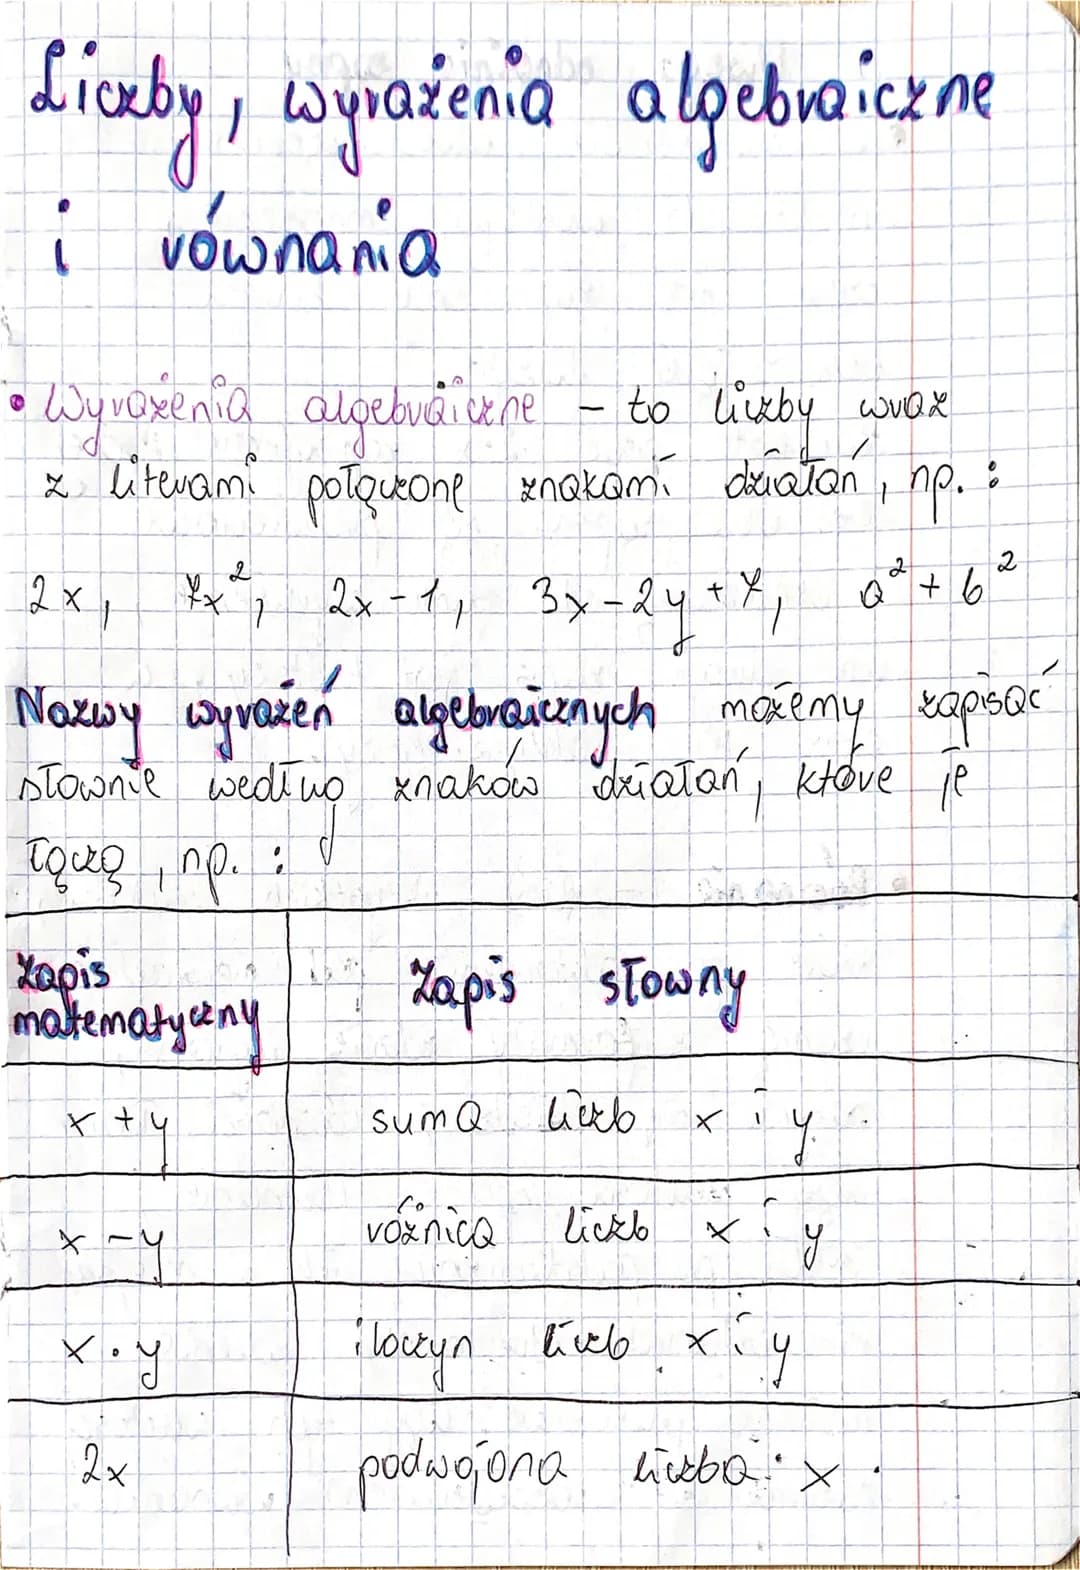 Liczby, wyrażenia algebraiczne
i równania
• Wyrażenia algebraiczne - to liczby wraz
z literami połączone znakami działań, np. :
2x, 7x², 2x-1, 3x-2y+7, a²+b²
Nazwy wyrażeń algebraicznych możemy zapisać
słownie według znaków działań, które je
łączą, np. :
Zapis matematyczny Zapis słowny
x+y suma liczb x i y
x-y różnica liczb x i y
x·y iloczyn liczb x i y
2x podwojona liczba x